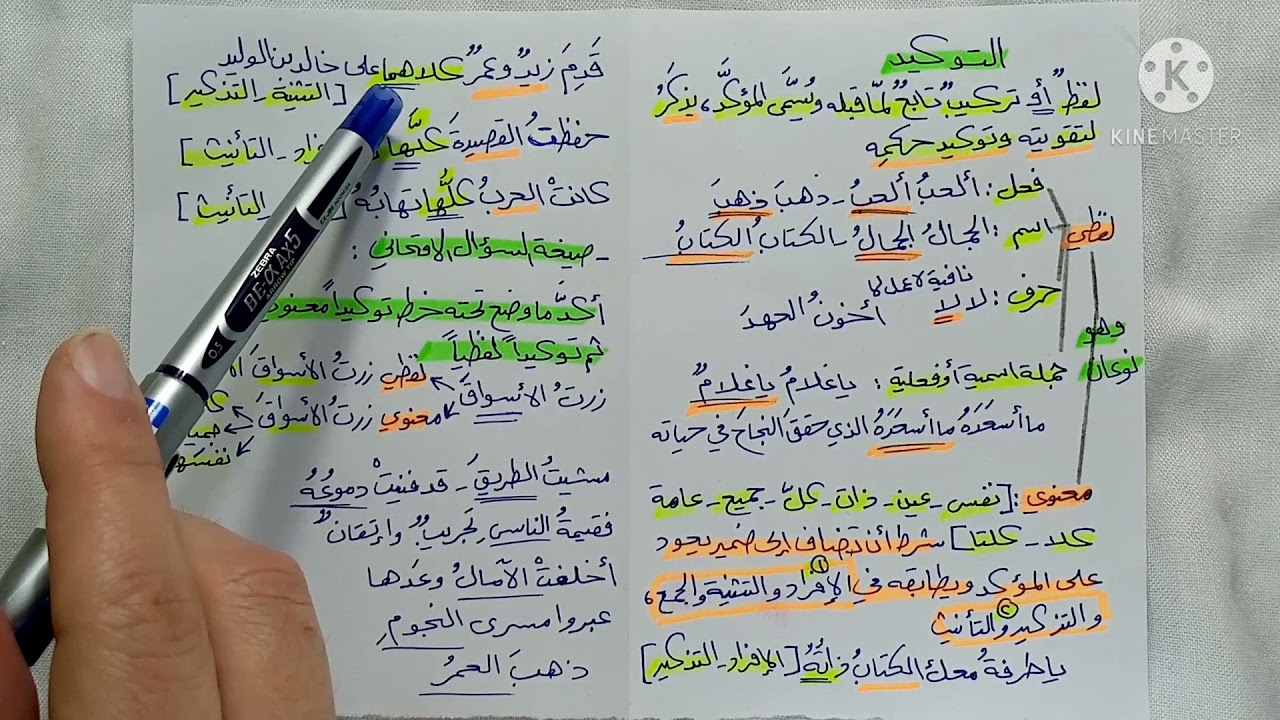 التوكيد
لفظٌ أو تركيبٌ تابعٌ لمّا قبله ويُسمَّى المؤكَّد، يذكرُ
لتقويته وتوكيد حكمِه
وهو
نوعان
لفظي
فعل : ألعبُ ألعبُ - ذهبَ ذهبَ
اسم : الجمالُ الجمالُ - الكتابُ الكتابُ
نافية لا عمل لها
حرف : لا لا أخونُ العهدَ
جملة اسمية أو فعلية : ياغلامُ ياغلامُ
ما أسعَدَهُ ما أسعَدَهُ الذي حققَ النجاحَ في حياته
معنوي : [نفس - عين - ذات - كلّ - جميع - عامة
كلا - كلتا] شرط أن تضاف إلى ضمير يعود
على المؤكد ويطابقه في الإفراد والتثنية والجمع،
والتذكير والتأنيث
ياطرفةُ معك الكتابُ ذاتُهُ [الإفراد - التذكير]
قَدِمَ زيدٌ وعمرٌ كلاهما على خالد بن الوليد
[التثنية - التذكير]
حفظتُ القصيدةَ كلَّها - التأنيث]
كانتْ العربُ كلُّها تهابُهُ التأنيث]
- صيغة السؤال الامتحاني :
أكدَّ ما وضع تحته خط توكيداً معنوي
ثم توكيداً لفظياً
زرتُ الأسواقَ
لفظي زرتُ الأسواقَ
معنوي زرتُ الأسواقَ
مشيتُ الطريقَ - قد فنيتْ دموعُهُ
فقيمةُ الناسِ تجريبٌ وإتقانٌ
أخلفتْ الآمالُ وعدَها
عبروا مسرى النجومِ
ذهبَ العمرُ
ZEBRA
BE-αAX5
0.5
K
KINEMASTER